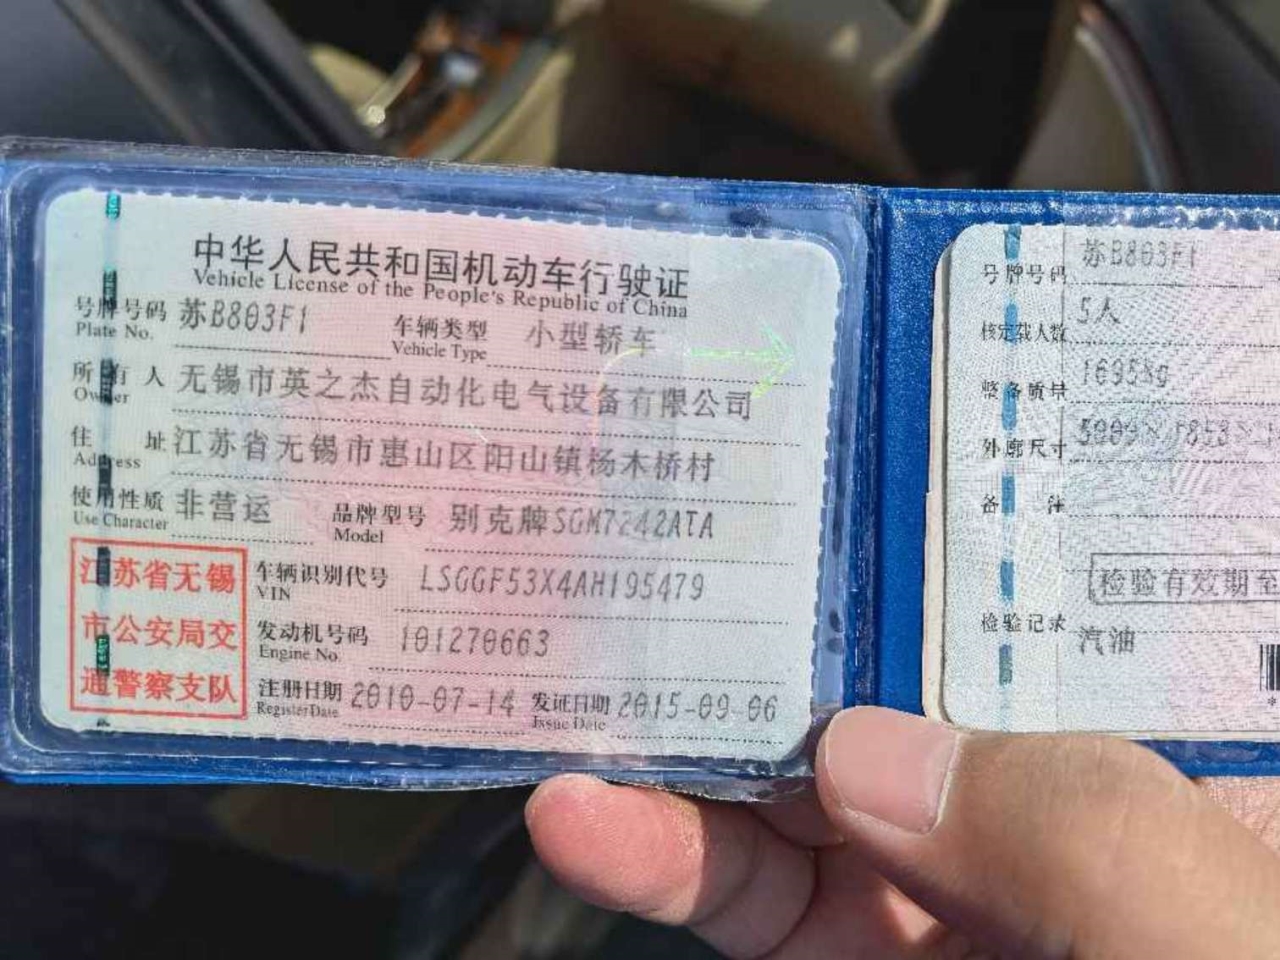 中华人民共和国机动车行驶证
Vehicle License of the People's Republic of China
号牌号码 苏B803F1 车辆类型 小型轿车
Plate No. Vehicle Type
所有人 无锡市英之杰自动化电气设备有限公司
Owner
住址 江苏省无锡市惠山区阳山镇杨木桥村
Address
使用性质 非营运 品牌型号 别克牌SGM7242ATA
Use Character Model
江苏省无锡
市公安局交
通警察支队
车辆识别代号 LSGGF53X4AH195479
VIN
发动机号码 101270663
Engine No.
注册日期 2010-07-14 发证日期 2015-09-06
Register Date Issue Date
号牌号码 苏B803F1
核定载人数 5人
整备质量 1695kg
外廓尺寸
备注
检验有效期至
检验记录
汽油